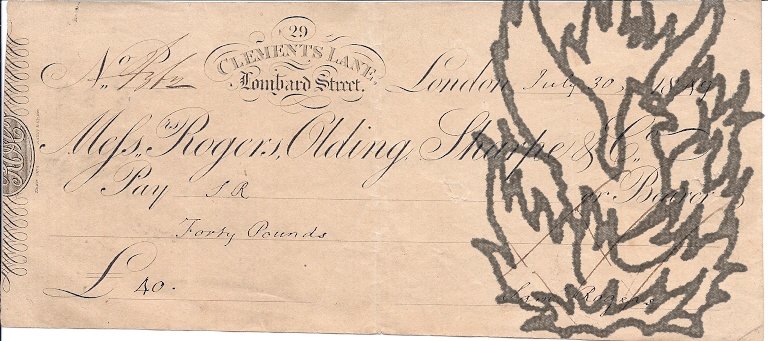 29
CLEMENTS LANE,
Lombard Street.
No.
London July 30 18
Messrs. Rogers, Olding, Sharpe & Co.
Pay S R or Bearer
Forty Pounds
£ 40.
Rogers